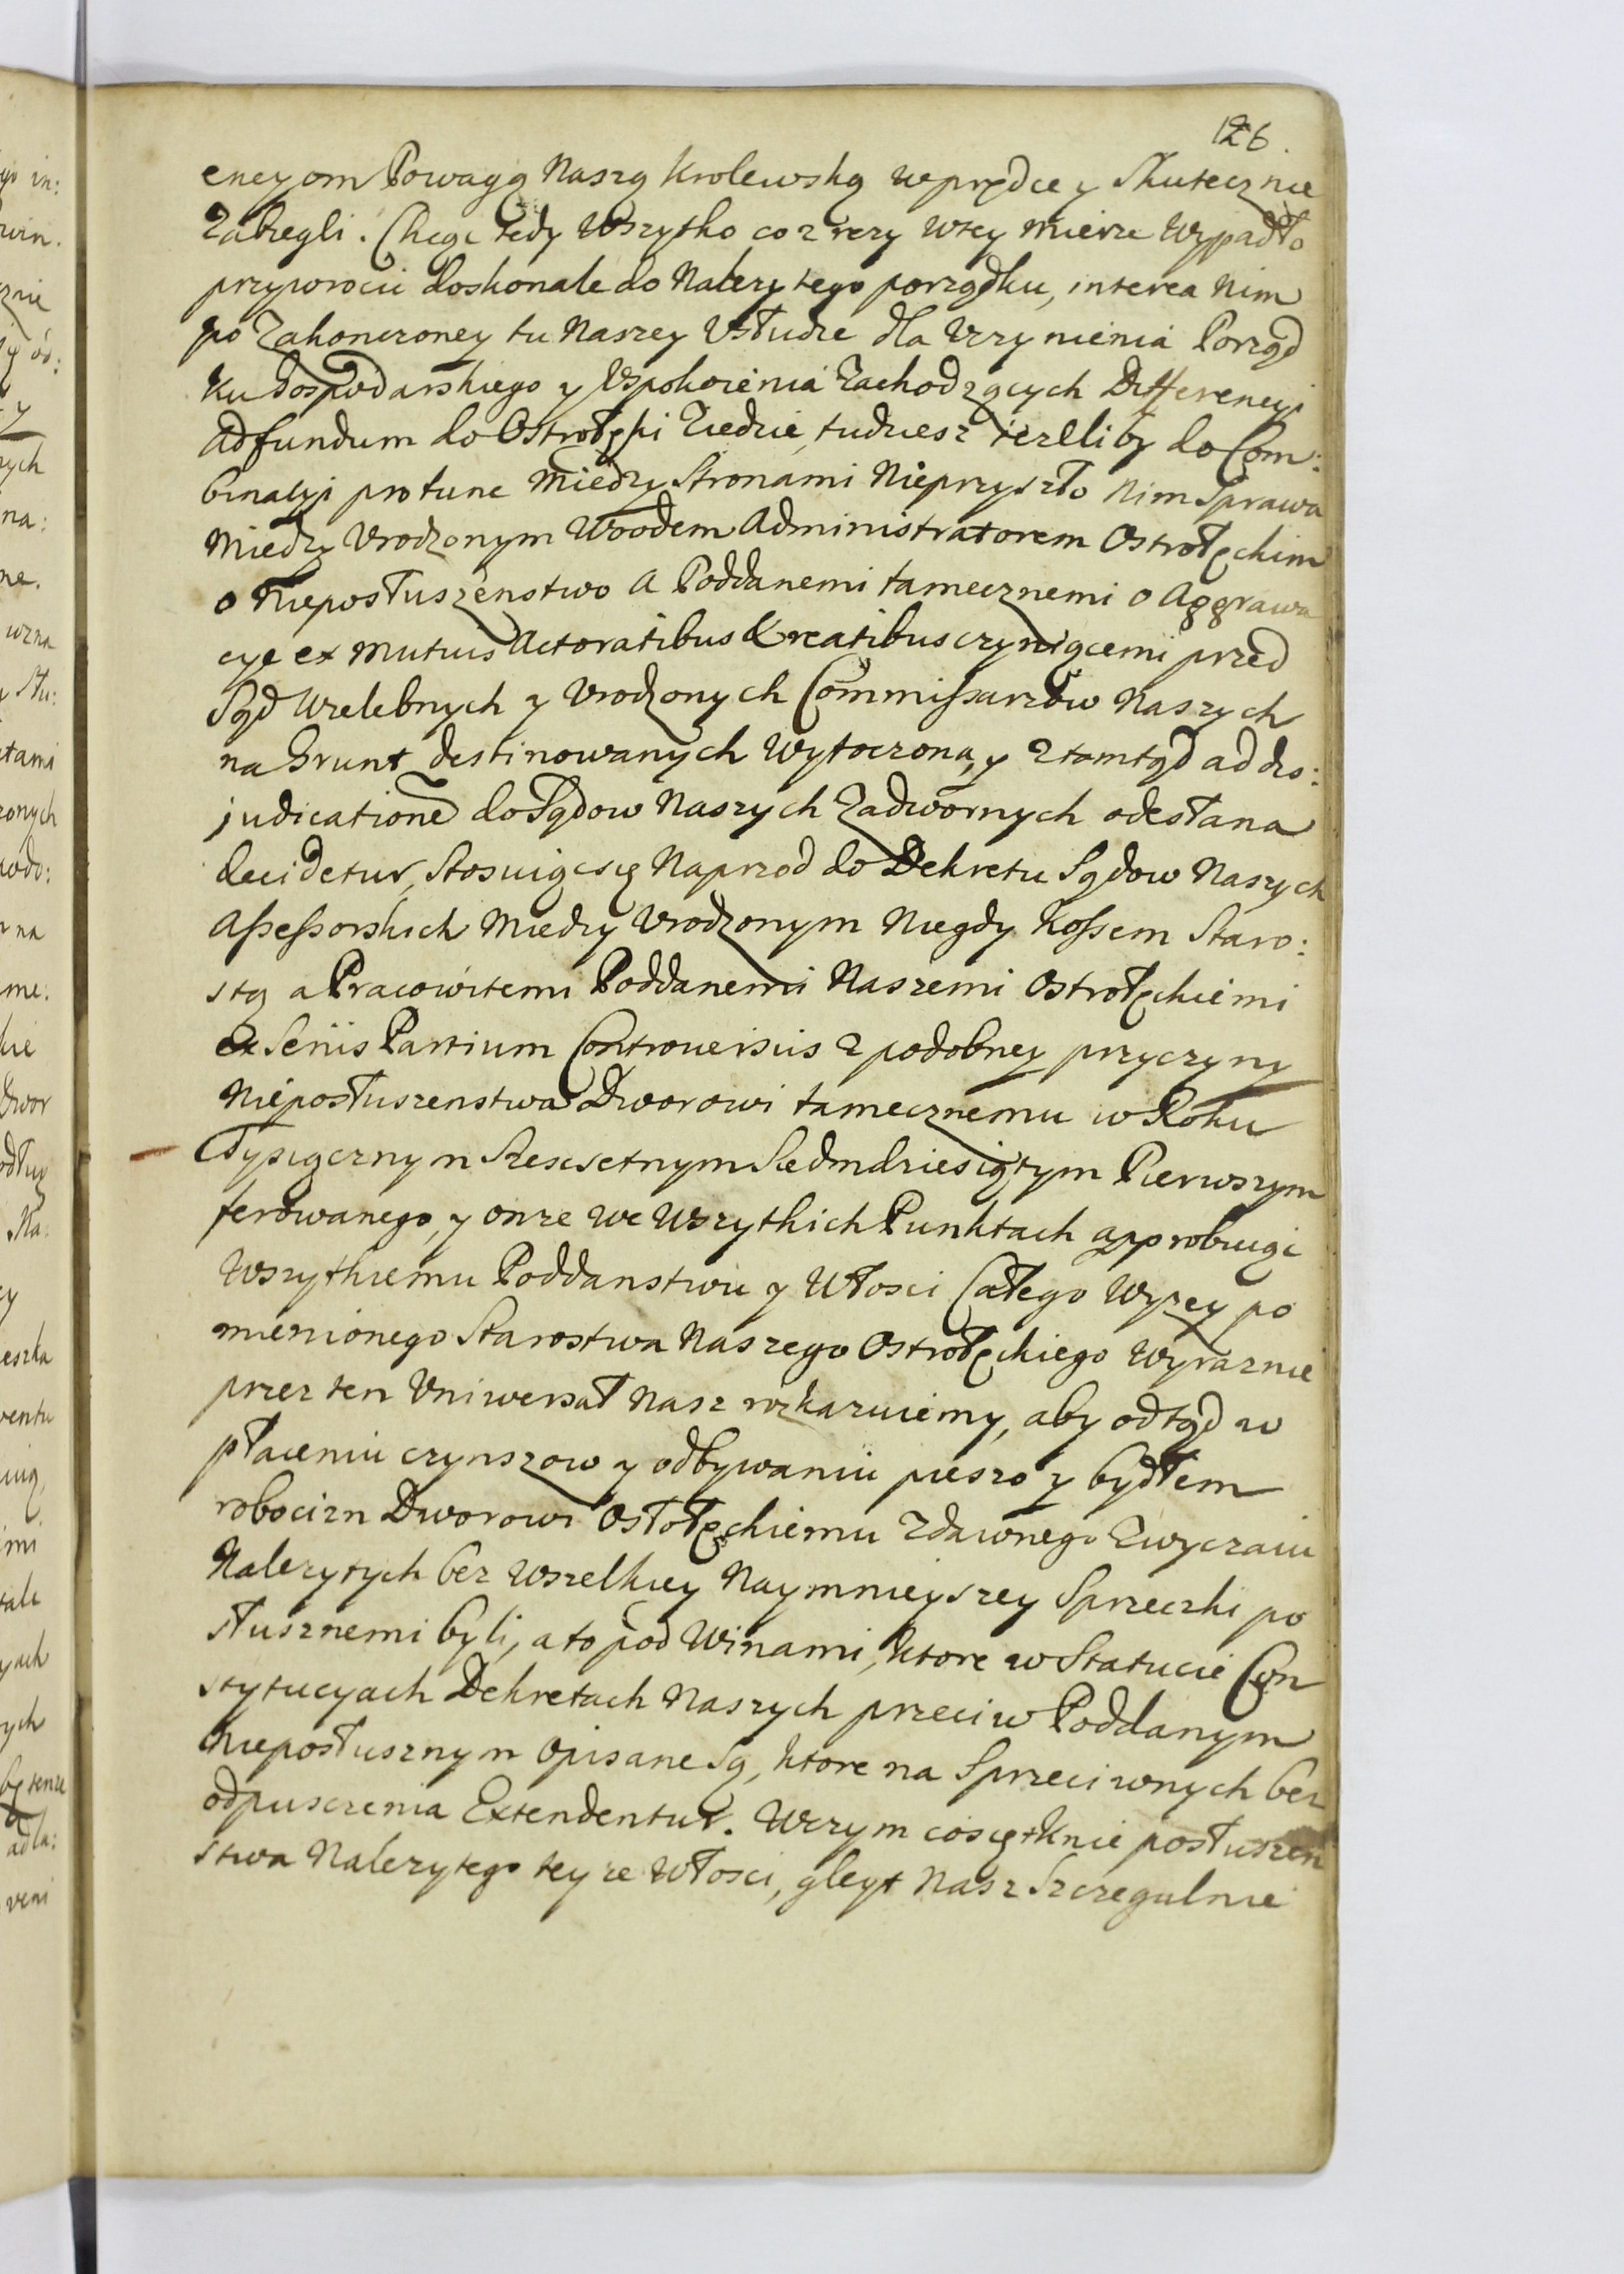 126.
encyom Powagą Naszą Krolewską wprędce y Skutecznie
Zabiegli. Chcąc tedy Wszytko co z rezy wtey mierze Wypadło
przywrocić doskonale do Należytego porządku, interea Nim
po Zakonczoney tu Naszey Usłudze dla Uczynienia Porząd
ku Gospodarskiego y Uspokoienia Zachodzących Differencyi
ad fundum do Ostrołęki Ziedzie, tudziesz ieżeliby do Com:
binacyi pro tunc Między Stronami Nieprzyszło Nim Sprawa
Między Urodzonym Woodem Administratorem Ostrołęckim
o Nieposłuszenstwo a Poddanemi tamecznemi o Aggrawa
cye ex Mutuis Actoratibus & reatibus czyniącemi przed
Sąd Wielebnych y Urodzonych Commissarzow Naszych
na Grunt destinowanych Wytoczona, y ztamtąd ad dis:
judicatione do Sądow Naszych Zadwornych odesłana
decidetur, Stosuiąc się Naprzod do Dekretu Sądow Naszych
Assessorskich Miedzy Urodzonym Niegdy Kossem Staro:
stą a Pracowitemi Poddanemi Naszemi Ostrołęckiemi
ex Seriis Partium Controuersiis z podobney przyczyny
Nieposłuszenstwa Dworowi tamecznemu w Roku
Tysiącznym Szescsetnym Siedmdziesiątym Pierwszym
ferowanego, y onże We Wszytkich Punktach approbuiąc
Wszytkiemu Poddanstwu y Włosci Całego Wyżey po
mienionego Starostwa Naszego Ostrołęckiego Wyraznie
przez ten Uniwersał Nasz rozkazuiemy, aby odtąd w
płaceniu czynszow y odbywaniu pieszo y bydłem
robocizn Dworowi Ostołęckiemu zdawnego Zwyczaiu
Należytych bez Wszelkiey Naymnieyszey Sprzeczki po
słusznemi byli, a to pod Winami, ktore w Statucie Con
stytucyach Dekretach Naszych przeciw Poddanym
Nieposłusznym opisane Są, ktore na Sprzeciwnych bez
odpuszczenia Extendentur. Wczym co się tknie posłuszen
stwa Należytego teyże Włosci, gleyt Nasz Szczegulnie